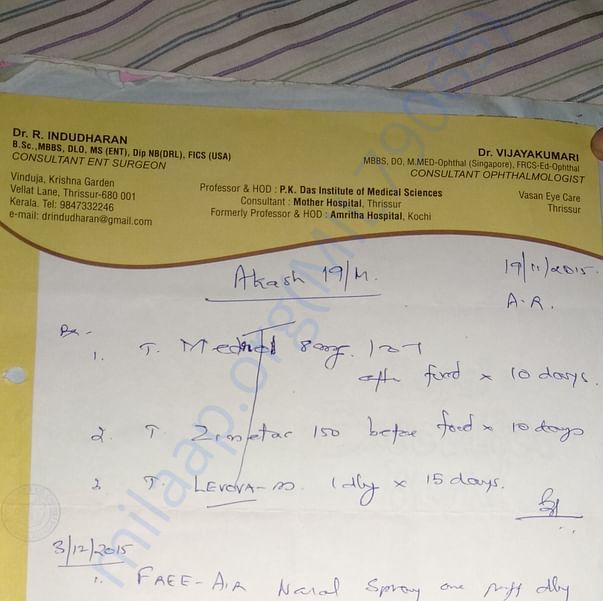 Dr. R. INDUDHARAN
B.Sc.,MBBS, DLO, MS (ENT), Dip NB(DRL), FICS (USA)
CONSULTANT ENT SURGEON
Vinduja, Krishna Garden
Vellat Lane, Thrissur-680 001
Kerala. Tel: 9847332246
e-mail: drindudharan@gmail.com
Professor & HOD : P.K. Das Institute of Medical Sciences
Consultant : Mother Hospital, Thrissur
Formerly Professor & HOD : Amritha Hospital, Kochi
Dr. VIJAYAKUMARI
MBBS, DO, M.MED-Ophthal (Singapore), FRCS-Ed-Ophthal
CONSULTANT OPHTHALMOLOGIST
Vasan Eye Care
Thrissur
Akash 19/M.
19/11/2015.
A.R.
1. T. Medrol 8mg.
food x 10 days.
2. T. 150 before food x 10 days
3. T. LEVOVA- 1 dly x 15 days.
3/12/2015
1. FREE-AIR Nasal Spray one puff dly
milaap.org